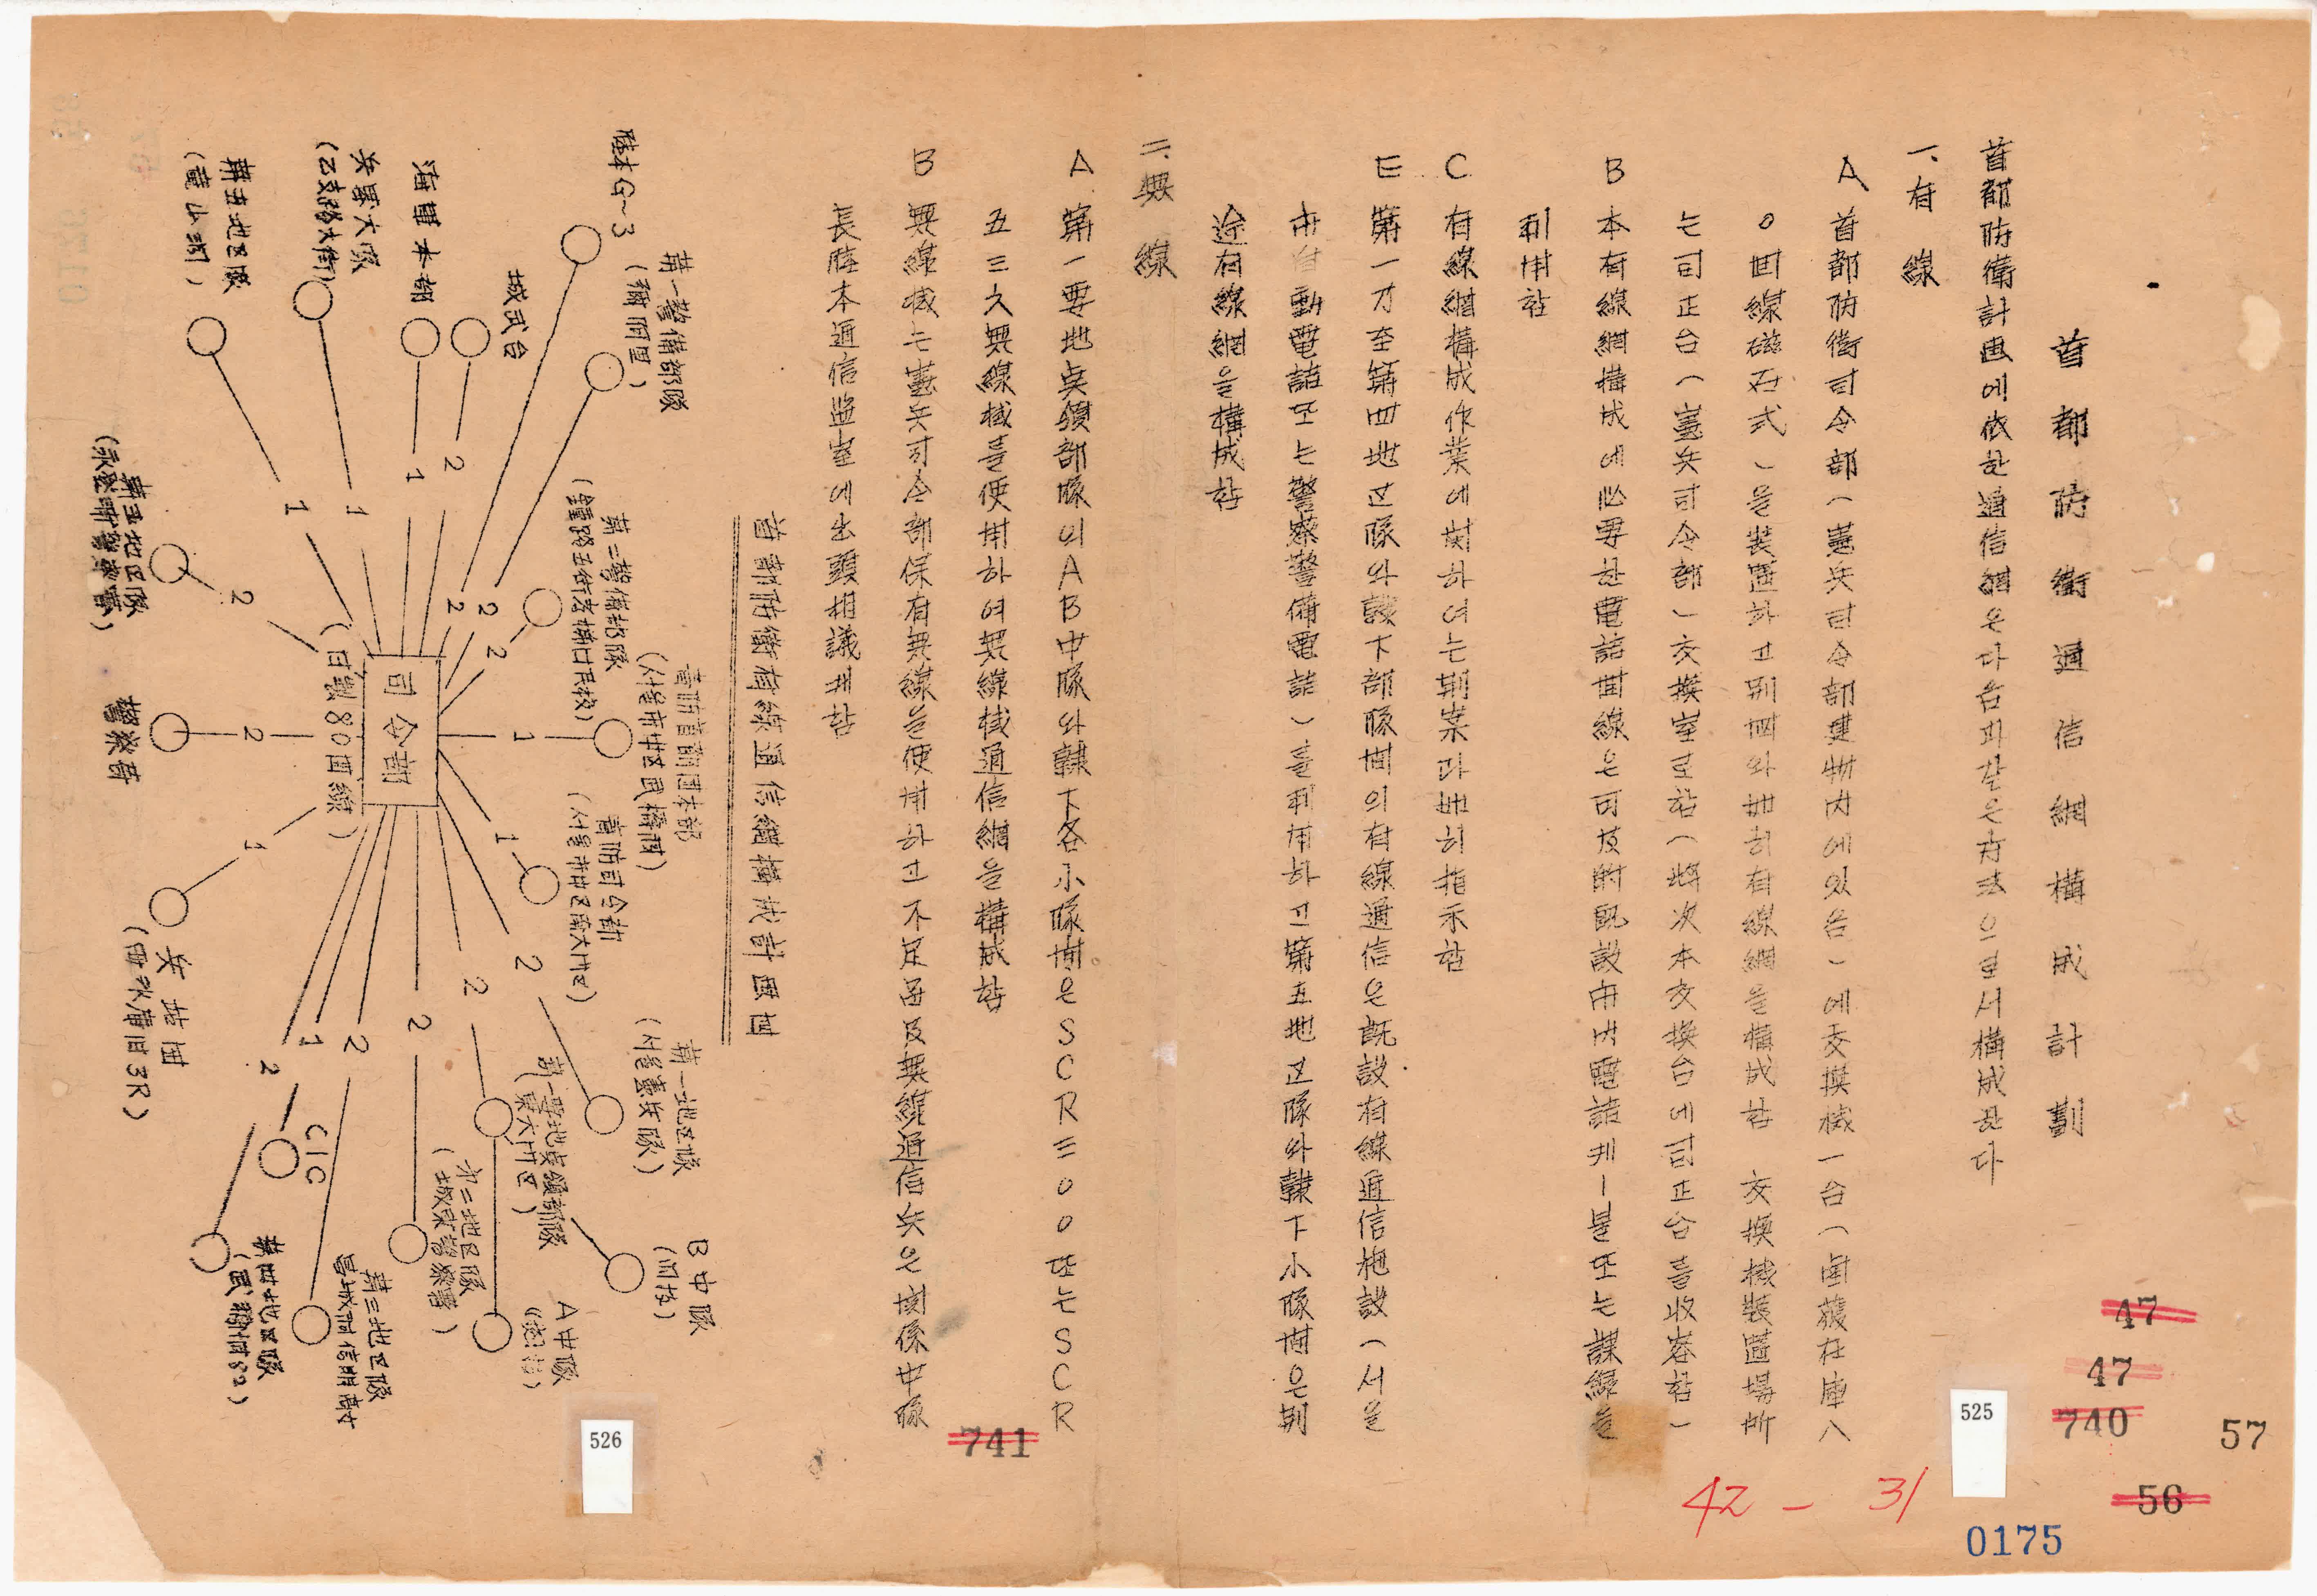 首都防衛通信網構成計劃
首都防衛計画에依한通信網은다음과같은方法으로서構成한다
一、有線
A 首都防衛司令部(憲兵司令部建物内에있음)에交換機一台(南薩在庫八
0回線磁石式)을装置하고別図와如히有線網을構成함 交換機装置場所
는司正台(憲兵司令部)交換室로함(將次本交換台에司正台를收容함)
B 本有線網構成에必要한電話回線은可及的既設市内電話케ー블또는課線을
利用함
C 有線網構成作業에対하여는別案과如히指示함
E 第一乃至第四地区隊와隷下部隊間의有線通信은既設有線通信施設(서울
市自動電話또는警察警備電話)를利用하고第五地区隊와隷下小隊間은別
途有線網을構成함
二、無線
A 第一要地点領部隊의AB中隊와隷下各小隊間은SCR三00또는SCR
五三六無線機를使用하여無線機通信網을構成함
B 無線機는憲兵司令部保有無線을使用하고不足品及無線通信兵은関係中隊
長陸本通信監室에出頭相議케함
首都防衛有線通信網構成計画図
陸本G~3
第一警備部隊
(爾明里)
城武台
海軍本部
兵墨大隊
(乙支路大街)
第五地区隊
第二警備部隊
首防首都団本部
(서울市中区武橋洞)
首防司令部
第一地区隊
(서울憲兵隊)
B中隊
A中隊
第一要地点領部隊
東大門区)
第二地区隊
(城東警察署)
第三地区隊
CIC
第四地区隊
兵站団
3R)
警察局
第五地区隊
司令部
(回線80回線)
1
1
1
2
2
2
2
2
2
1
1
2
2
2
2
1
2
1
47
47
740
57
56
525
42 - 31
0175
741
526